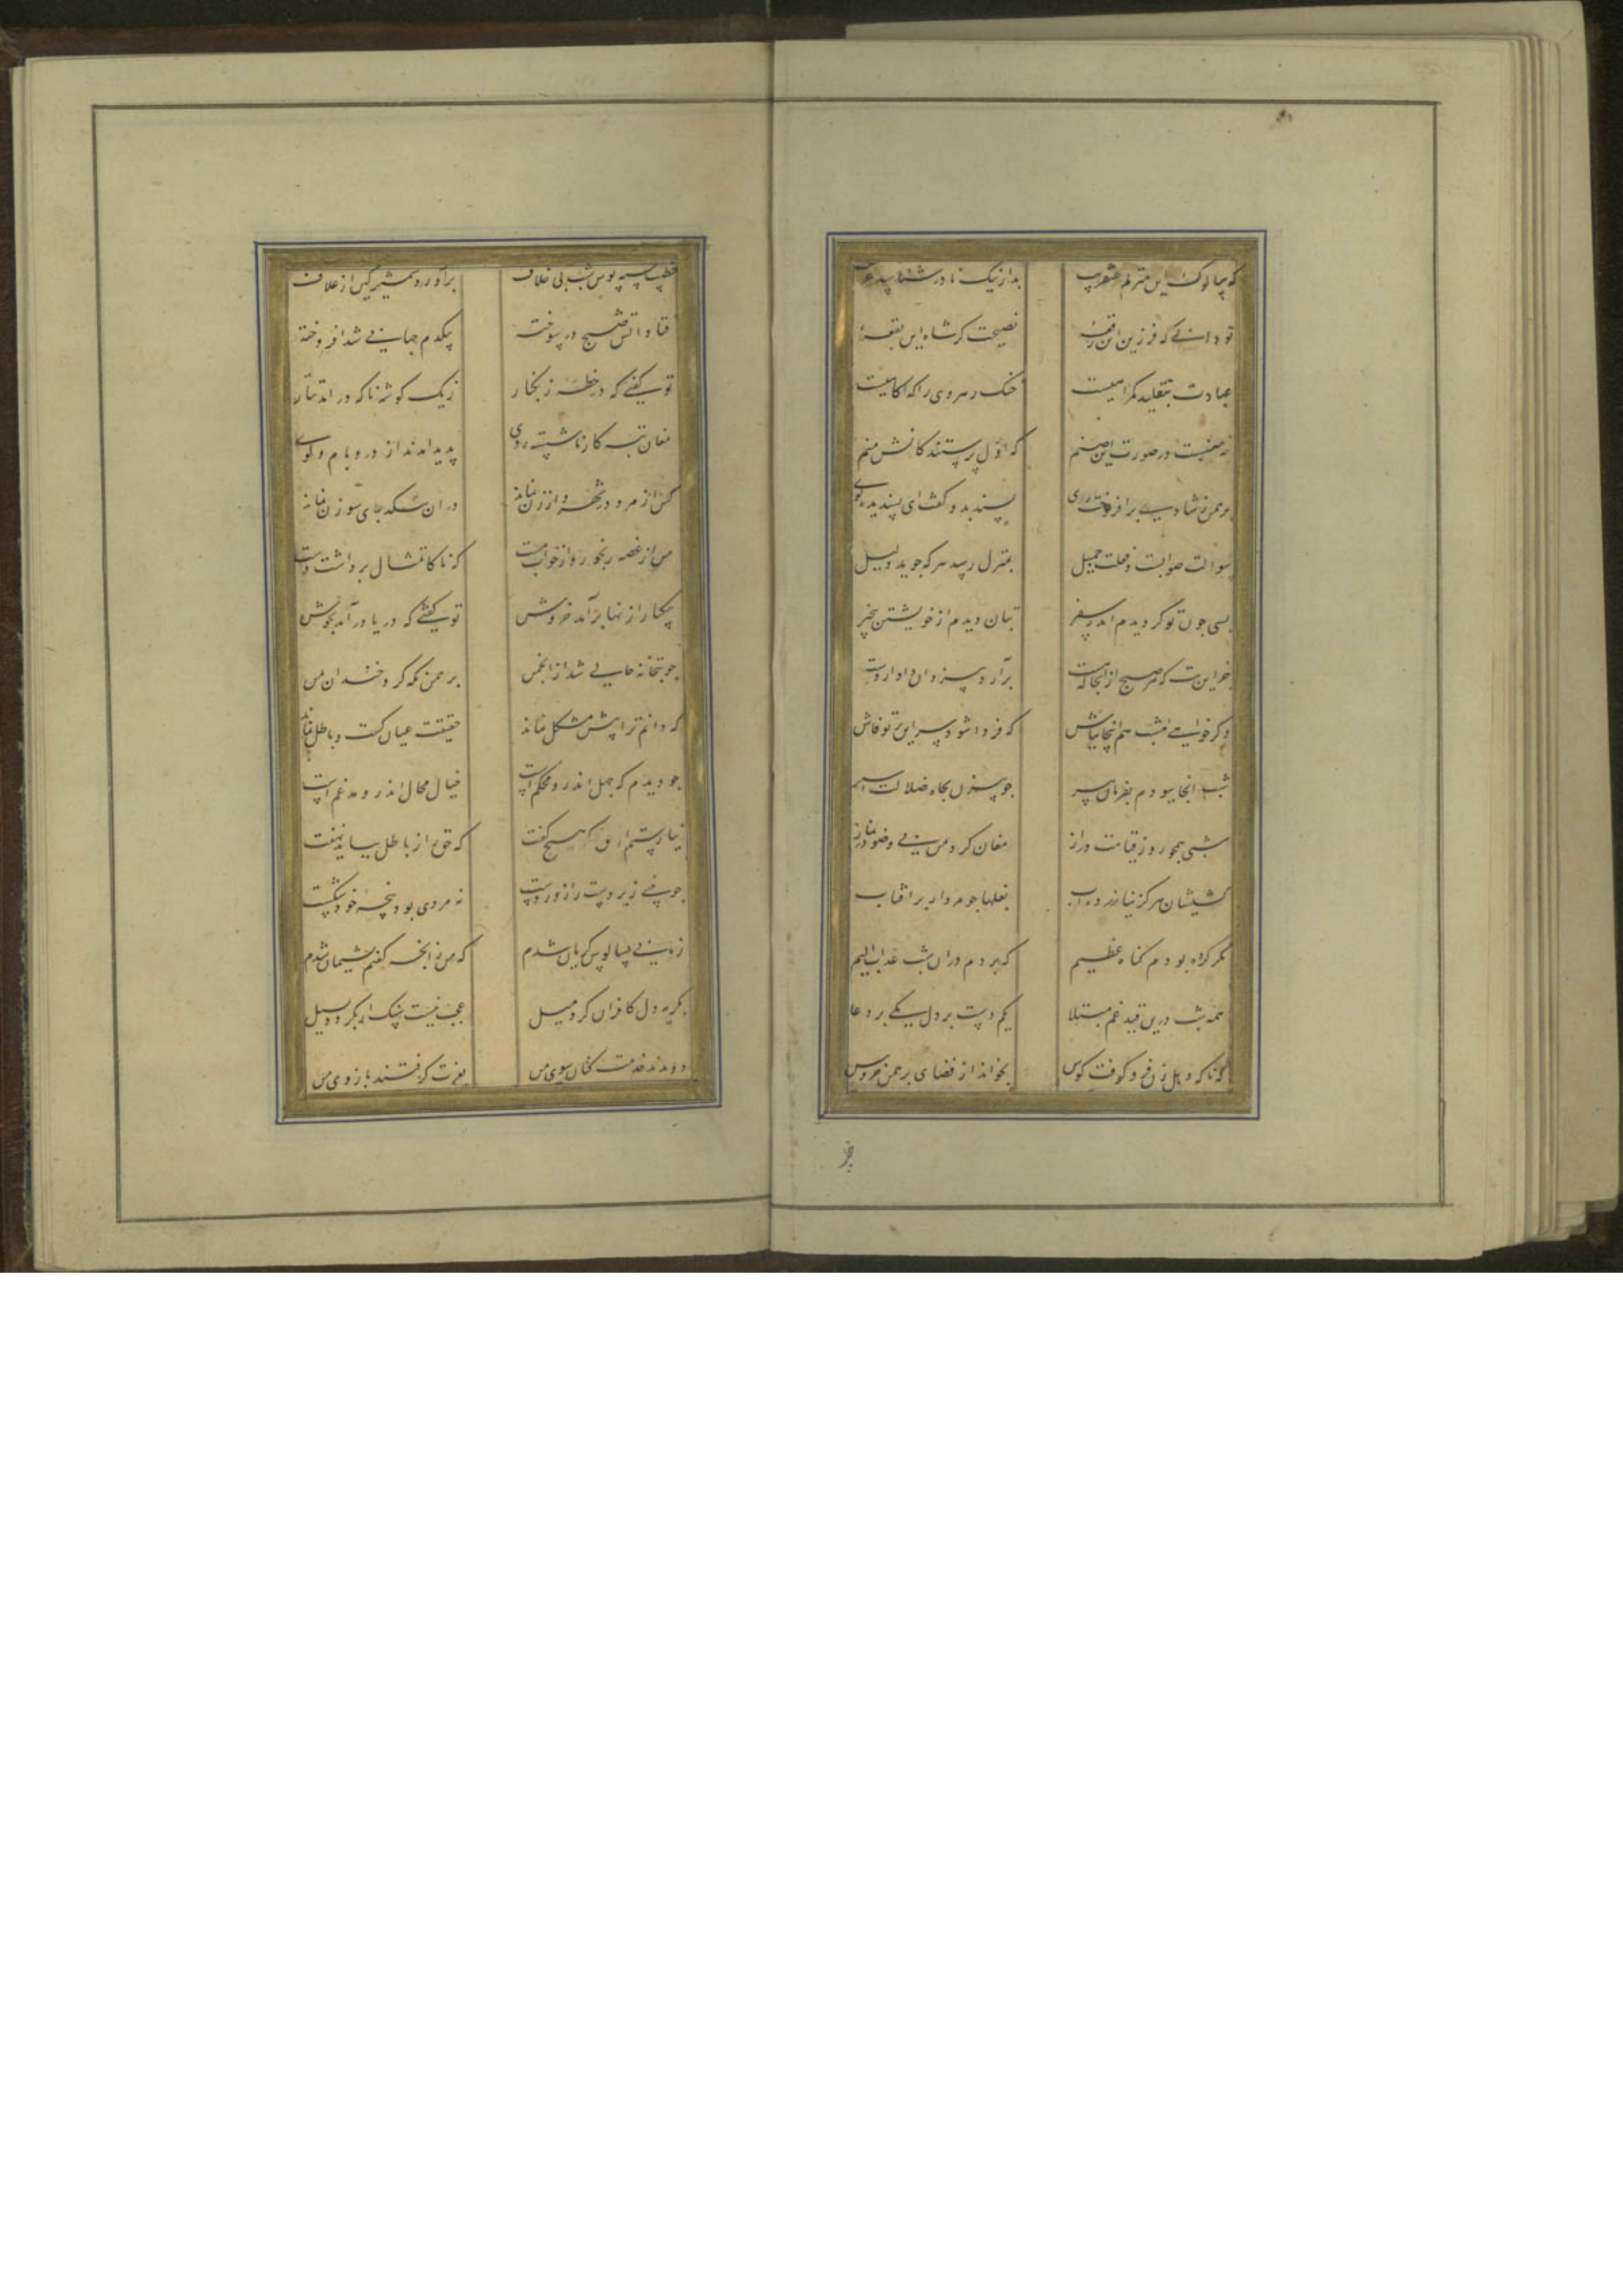 که سالوک این منزلم عنقریب بد از نیک نادر شناسد غریب
تو دانی که فرزین این رقعهٔ نصیحت کر شاه این بقعهٔ
عبادت بتقلید کمراهیست خنک رهروی را که اکاهیست
چه معنیست در صورت این صنم که اول پرستندکانش منم
برهمن ز شادی برافروخت روی پسندید و کفت ای پسندیده کوی
سوالت صوابست و فعلت جمیل بمنزل رسد هر که جوید دلیل
بسی چون تو کردیدم اندر سفر بتان دیدم از خویشتن بیخبر
جز این بت که هر صبح از اینجا که هست برآرد بیزدان دادار دست
وکر خواهی امشب هم اینجا بباش که فردا شود سر این بر تو فاش
شب انجا ببودم بفرمان پیر جو بیژن بجاه ضلالت اسیر
شبی همجو روز قیامت دراز مغان کرد من بی وضو در نماز
کشیشان هرکز نیازرده آب بغلها جو مردار در افتاب
مکر کرده بودم کناه عظیم که بردم دران شب عذاب الیم
همه شب درین قید غم مبتلا یکم دست بر دل یکی بر دعا
که ناکه دهل زن فرو کوفت کوس بخواند از فضای برهمن خروس
خطیب سیه پوش شب بی خلاف برآورد شمشیر کین از غلاف
فتاد اتش صبح در سوخته بیکدم جهانی شد افروخته
تو کفتی که در خطه زنکبار ز یک کوشه ناکه در امد تتار
مغان تبه کار ناشسته روی پدید امدند از در و بام و کوی
کس از مرد در شهر و از زن نماند در ان بتکده جای سوزن نماند
من از غصه رنجور و از خواب مست که ناکاه تمثال برداشت دست
بیکبار از نها برآمد خروش تو کفتی که دریا درآمد بجوش
جو بتخانه خالی شد از انجمن برهمن نکه کرد خندان بمن
که دانم ترا بیش مشکل نماند حقیقت عیان کشت و باطل نماند
جو دیدم که جهل اندر و محکم است خیال محال اندر و مدغم است
نیارستم از حق که هیچ کفت که حق از باطل بباید نهفت
جو بینی زبردست را زور دست نه مردی بود پنجه خود شکست
زمانی بسالوس کریان شدم که من زانجه کفتم پشیمان شدم
بکریه دل کافران کرد میل عجب نیست سنک ار بکردد بسیل
دویدند خدمت کنان سوی من بعزت کرفتند بازوی من